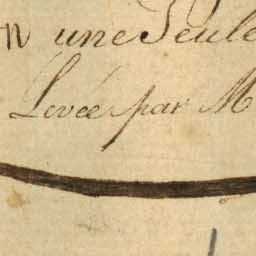 n une Seule
Levée par M